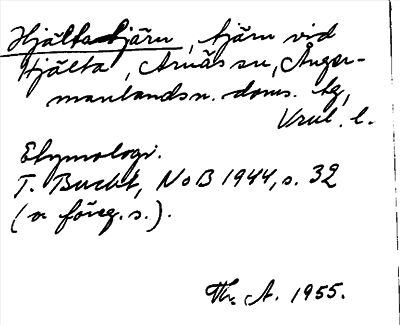 Hjältatjärn, tjärn vid
Hjälta, Arnäs sn, Ånger-
manlands n. doms. tg,
Vnrl. l.
Etymologi.
T. Bucht, NoB 1944, s. 32
(o föreg. s.).
Th. A. 1955.